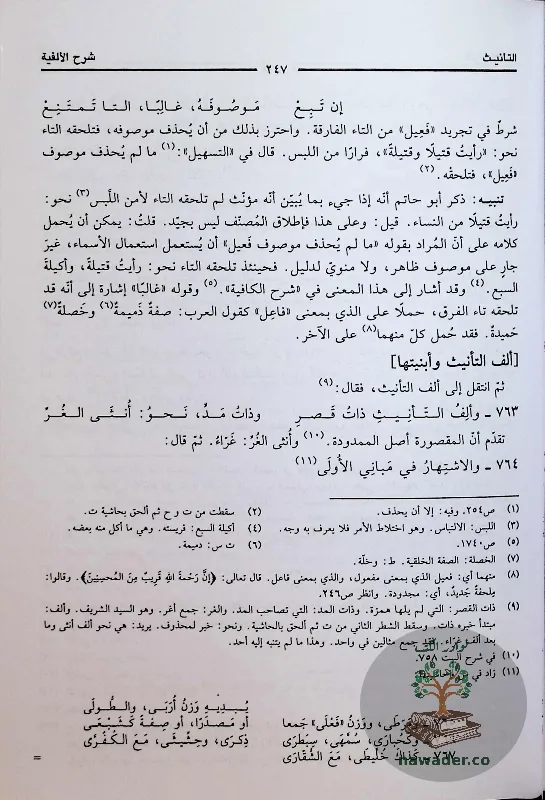 التانيث
شرح الألفية
٢٤٧
إن تَبِعْ مَوصُوفَهُ، غالِبًا، التا تَمتَنِعْ
شرطٌ في تجريد «فَعِيل» من التاء الفارقة. واحترز بذلك من أن يُحذف موصوفه، فتلحقه التاء
نحو: «رأيتُ قتيلًا وقتيلةً»، فرارًا من اللبس. قال في «التسهيل»:(١) ما لم يُحذف موصوف
«فَعِيل»، فتلحقْه.(٢)
تنبيه: ذكر أبو حاتم أنّه إذا جيء بما يُبيّن أنّه مؤنّث لم تلحقه التاء لأمن اللَّبس(٣) نحو:
رأيتُ قتيلًا من النساء. قيل: وعلى هذا فإطلاق المُصنّف ليس بجيّد. قلتُ: يمكن أن يُحمل
كلامه على أنّ المُراد بقوله «ما لم يُحذف موصوف فَعيل» أن يُستعمل استعمال الأسماء، غيرَ
جارٍ على موصوف ظاهر، ولا منويّ لدليل. فحينئذ تلحقه التاء نحو: رأيت قتيلةً، وأكيلةَ
السبع.(٤) وقد أشار إلى هذا المعنى في «شرح الكافية».(٥) وقوله «غالبًا» إشارة إلى أنّه قد
تلحقه تاء الفرق، حملًا على الذي بمعنى «فاعِل» كقول العرب: صفةٌ ذَميمةٌ(٦) وخَصلةٌ(٧)
حَميدةٌ. فقد حُمل كلّ منهما(٨) على الآخر.
[ألف التأنيث وأبنيتها]
ثمّ انتقل إلى ألف التأنيث، فقال:(٩)
٧٦٣ ـ وألِفُ التّأنِيثِ ذاتُ قَصرِ وذاتُ مَدٍّ، نَحوُ: أُنثَى الغُرِّ
تقدّم أنّ المقصورة أصل الممدودة.(١٠) وأُنثى الغُرّ: غَرّاءُ. ثمّ قال:
٧٦٤ ـ والاشتِهارُ في مَبانِي الأُولَى(١١)
(١) ص٢٥٤. وفيه: إلا أن يحذف.
(٢) سقطت من ت و ح ثم ألحق بحاشية ت.
(٣) اللبس: الالتباس. وهو اختلاط الأمر فلا يعرف به وجه.
(٤) أكيلة السبع: فريسته. وهي ما أكل منه بعضه.
(٥) ص١٧٤٠.
(٦) ت س: دميمة.
(٧) الخصلة: الصفة الخلقية. ط: وخلّة.
(٨) منهما أي: فعيل الذي بمعنى مفعول، والذي بمعنى فاعل. قال تعالى: ﴿إنَّ رَحمةَ اللهِ قَرِيبٌ مِنَ المُحسِنِينَ﴾. وقالوا:
مِلحفةٌ جَديدٌ، أي: مجدودة. وانظر ص٢٤٦.
(٩) ذات القصر: التي لم يلها همزة. وذات المد: التي تصاحب المد. والغر: جمع أغر. وهو السيد الشريف. وألف:
مبتدأ خبره ذات. وسقط الشطر الثاني من ت ثم ألحق بالحاشية. ونحو: خبر لمحذوف. يريد: هي نحو ألف أنثى وما
بعد ألف غرّاء. فقد جمع مثالين في واحد. وهذا ما لم يتنبه إليه أحد.
(١٠) في شرح البيت ٧٥٨.
(١١) زاد في
يُبدِيهِ وَزنُ أُرَبَى، والطُّولَى
وَوَزنُ «فَعْلَى» جَمعا أو مَصدَرًا، أو صِفةً كَشَبْعَى
وكَحُبارَى، سُمَّهَى، سِبَطرَى ذِكرَى، وحِثِّيثَى، مَعَ الكُفُرَّى
٧٦٧ كَذاكَ خُلَّيطَى، مَعَ الشُّقّارَى
=
نوادر الكتب
nawader.co